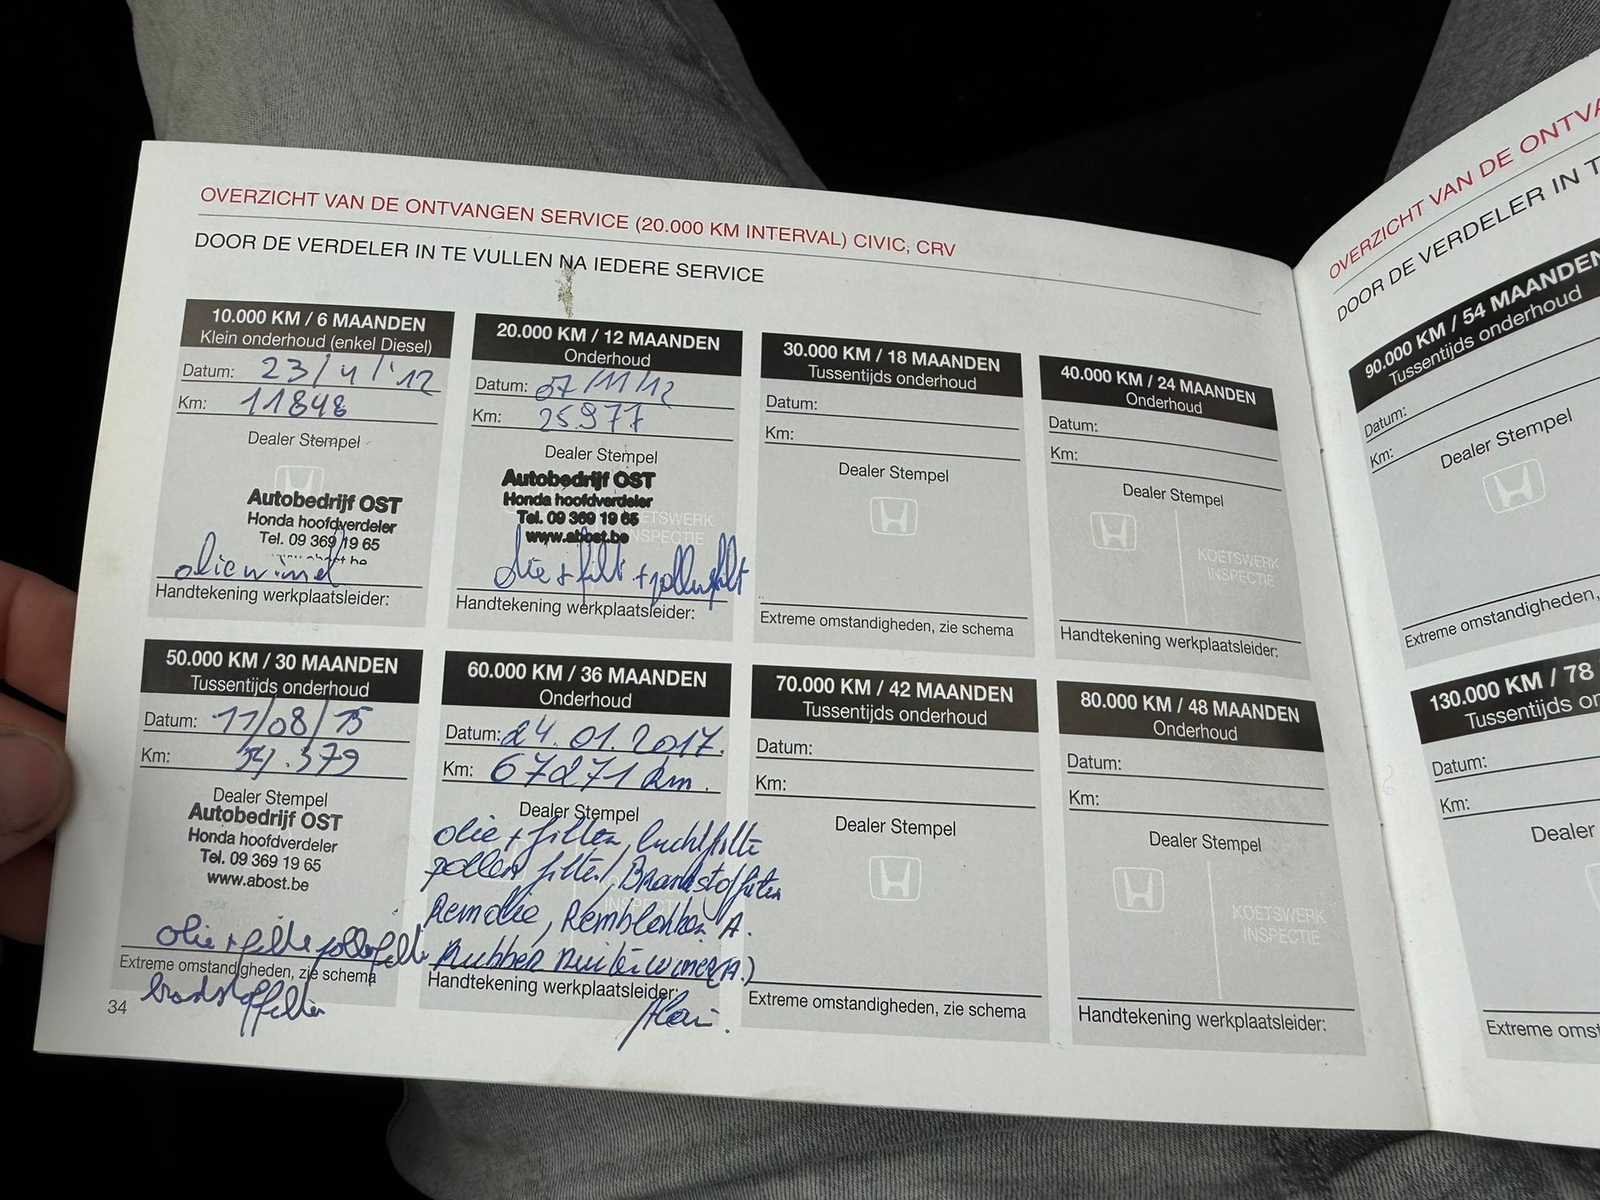 OVERZICHT VAN DE ONTVANGEN SERVICE (20.000 KM INTERVAL) CIVIC, CRV
DOOR DE VERDELER IN TE VULLEN NA IEDERE SERVICE
10.000 KM / 6 MAANDEN
Klein onderhoud (enkel Diesel)
Datum: 23/4/'12
Km: 11848
Dealer Stempel
Autobedrijf OST
Honda hoofdverdeler
Tel. 09 369 19 65
Handtekening werkplaatsleider:
20.000 KM / 12 MAANDEN
Onderhoud
Datum: 07/11/12
Km: 25.977
Dealer Stempel
Autobedrijf OST
Honda hoofdverdeler
Tel. 09 369 19 65
www.abost.be
KOETSWERK
INSPECTIE
olie + filt + pollenfilt
Handtekening werkplaatsleider:
30.000 KM / 18 MAANDEN
Tussentijds onderhoud
Datum:
Km:
Dealer Stempel
Extreme omstandigheden, zie schema
40.000 KM / 24 MAANDEN
Onderhoud
Datum:
Km:
Dealer Stempel
KOETSWERK
INSPECTIE
Handtekening werkplaatsleider:
50.000 KM / 30 MAANDEN
Tussentijds onderhoud
Datum: 11/08/15
Km: 54.379
Dealer Stempel
Autobedrijf OST
Honda hoofdverdeler
Tel. 09 369 19 65
www.abost.be
olie + filte pollenfilt
Extreme omstandigheden, zie schema
brandstoffilter
60.000 KM / 36 MAANDEN
Onderhoud
Datum: 24.01.2017.
Km: 67271 km.
Dealer Stempel
olie + filter, luchtfilte
pollen filter, Brandstoffilter
Remolie, Remblokken A.
Rubber Ruitewisser(A.)
Handtekening werkplaatsleider:
70.000 KM / 42 MAANDEN
Tussentijds onderhoud
Datum:
Km:
Dealer Stempel
Extreme omstandigheden, zie schema
80.000 KM / 48 MAANDEN
Onderhoud
Datum:
Km:
Dealer Stempel
KOETSWERK
INSPECTIE
Handtekening werkplaatsleider:
34
OVERZICHT VAN DE
DOOR DE VERDELER IN
90.000 KM / 54 MAANDEN
Tussentijds onderhoud
Datum:
Km:
Dealer Stempel
Extreme omstandigheden,
130.000 KM / 78
Tussentijds
Datum:
Km:
Dealer
Extreme